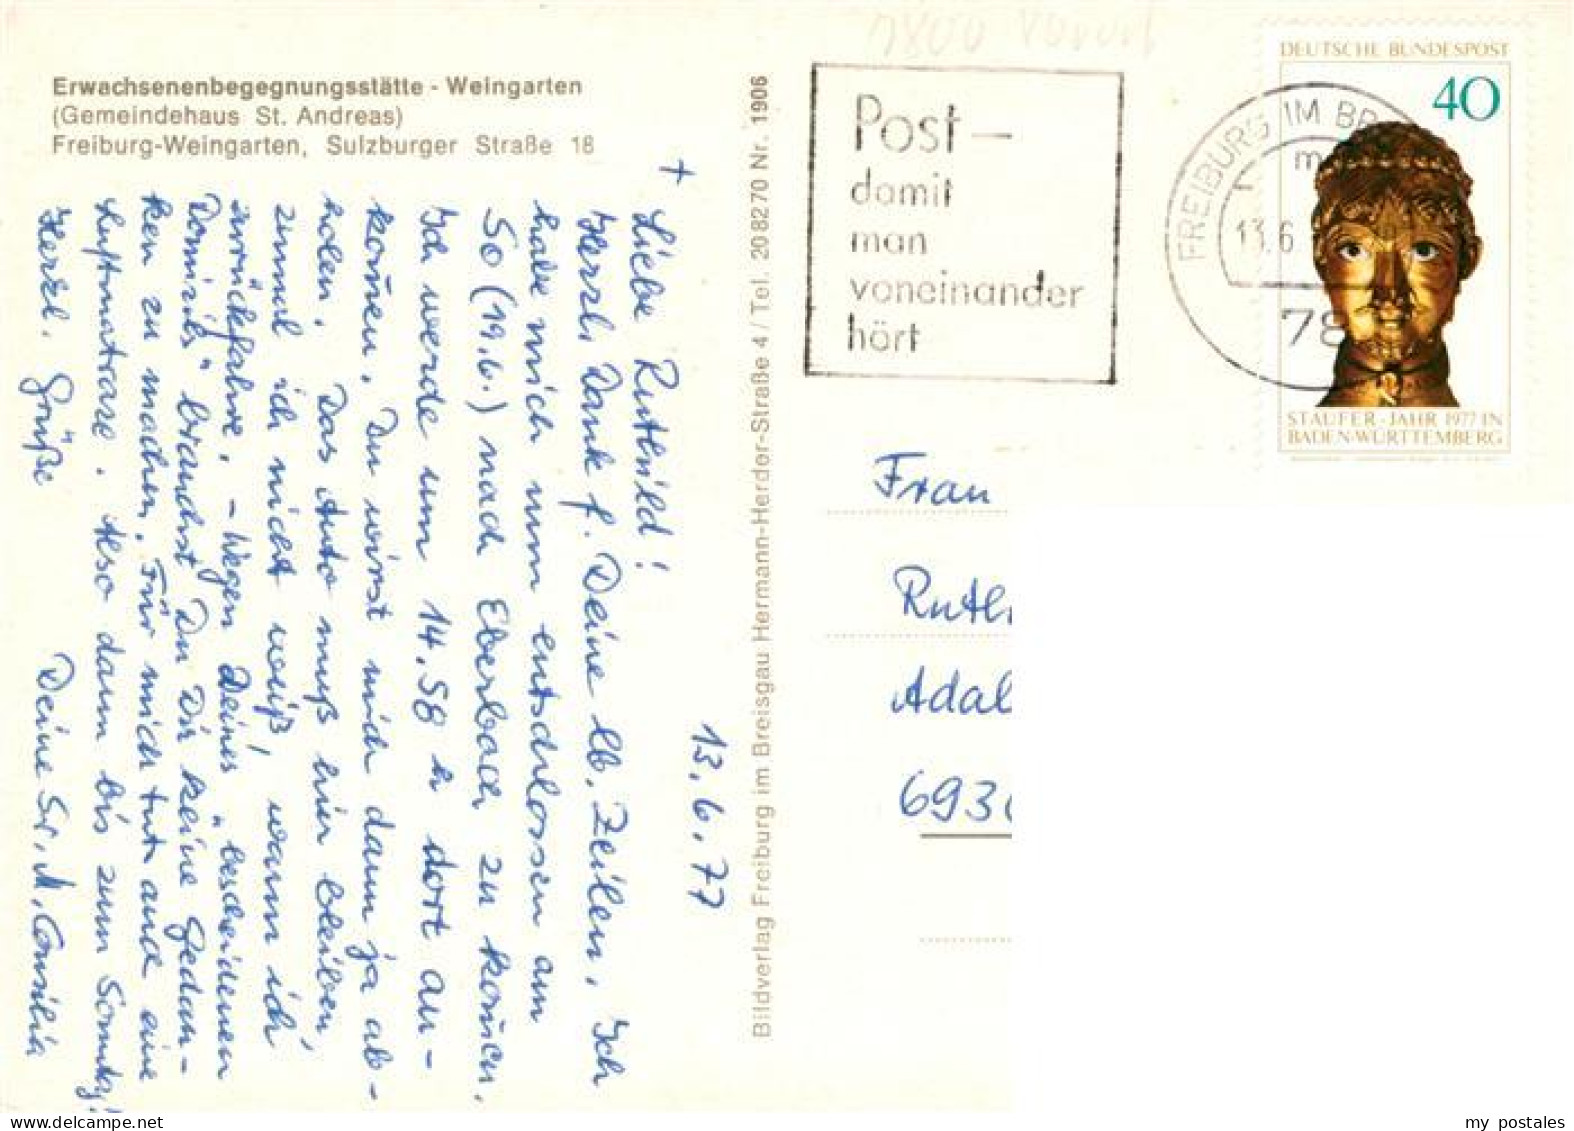 Erwachsenenbegegnungsstätte - Weingarten
(Gemeindehaus St. Andreas)
Freiburg-Weingarten, Sulzburger Straße 18
+
13.6.77
Liebe Ruthild!
Herzl. Dank f. Deine lb. Zeilen. Ich
habe mich nun entschlossen am
So (19.6.) nach Eberbach zu kommen.
Ich werde um 14.58 h dort an-
kommen. Du wirst mich dann ja ab-
holen. Das Auto muß hier bleiben,
zumal ich nicht weiß, wann ich
zurückfahre. - Wegen Deines "bescheidenen
Domizils" brauchst Du Dir keine Gedan-
ken zu machen. Für mich tut auch eine
Luftmatraze. Also dann bis zum Sonntag!
Herzl. Grüße
Deine Sr. M.
Bildverlag Freiburg im Breisgau Hermann-Herder-Straße 4 / Tel. 208270 Nr. 1906
Post -
damit
man
voneinander
hört
FREIBURG IM BR
m
13.6
78
DEUTSCHE BUNDESPOST
40
STAUFER-JAHR 1977 IN
BADEN-WÜRTTEMBERG
Frau
Ruth
Adal
693
my postales